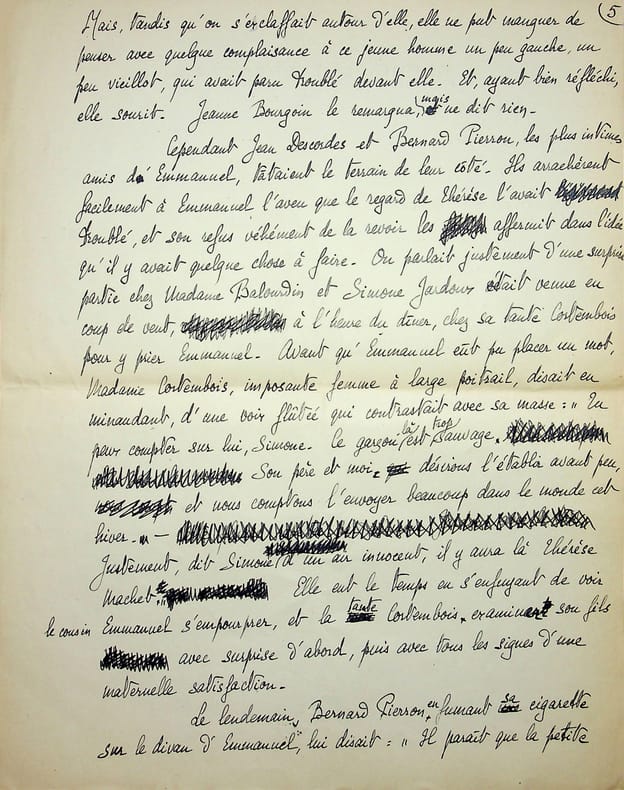 5
Mais, tandis qu'on s'esclaffait autour d'elle, elle ne put manquer de
penser avec quelque complaisance à ce jeune homme un peu gauche, un
peu vieillot, qui avait paru troublé devant elle. Et, ayant bien réfléchi,
elle sourit. Jeanne Bourgoin le remarqua, mais ne dit rien.
Cependant Jean Descordes et Bernard Pierron, les plus intimes
amis d'Emmanuel, tâtaient le terrain de leur côté. Ils arrachèrent
facilement à Emmanuel l'aveu que le regard de Thérèse l'avait
troublé, et son refus véhément de la revoir les affermit dans l'idée
qu'il y avait quelque chose à faire. On parlait justement d'une surprise
partie chez Madame Balourdin et Simone Jardoux était venue en
coup de vent, à l'heure du dîner, chez sa tante Cortembois
pour y prier Emmanuel. Avant qu'Emmanuel eût pu placer un mot,
Madame Cortembois, imposante femme à large poitrail, disait en
minaudant, d'une voix flûtée qui contrastait avec sa masse : "Tu
peux compter sur lui, Simone. Ce garçon là est trop sauvage.
Son père et moi désirons l'établir avant peu,
et nous comptons l'envoyer beaucoup dans le monde cet
hiver." —
Justement, dit Simone d'un air innocent, il y aura là Thérèse
Machet." Elle eut le temps en s'enfuyant de voir
le cousin Emmanuel s'empourprer, et la tante Cortembois examiner son fils
avec surprise d'abord, puis avec tous les signes d'une
maternelle satisfaction.
Le lendemain, Bernard Pierron, en fumant sa cigarette
sur le divan d'Emmanuel, lui disait : "Il paraît que la petite